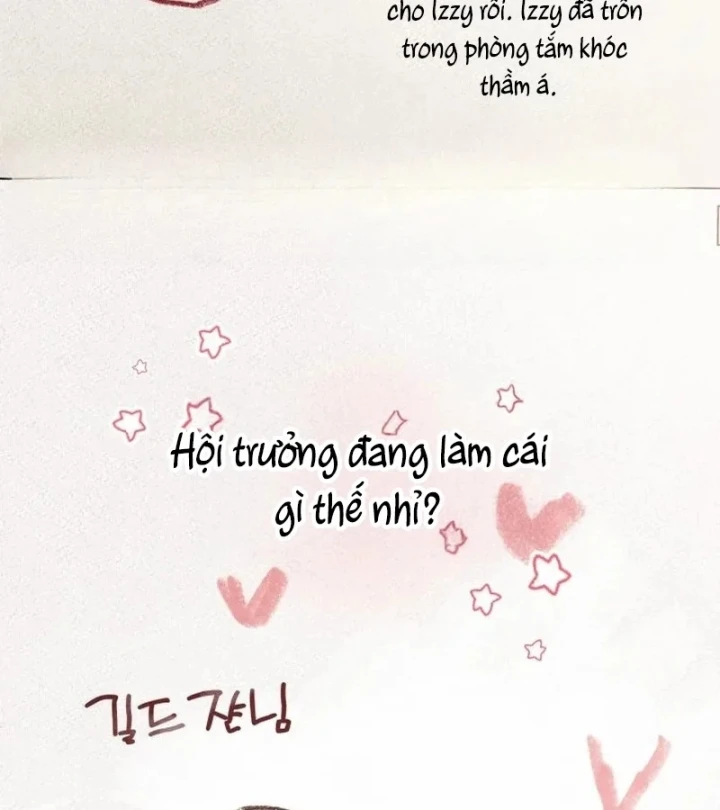 cho Izzy rồi. Izzy đã trốn
trong phòng tắm khóc
thầm á.
Hội trưởng đang làm cái
gì thế nhỉ?
길드 쟌님